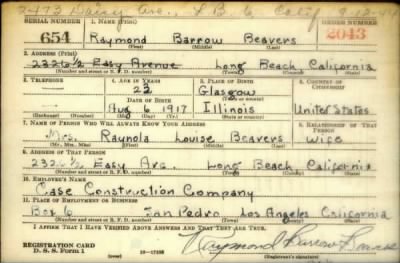 2473 Daisy Ave., L B 6, Calif
SERIAL NUMBER 1. NAME (Print) ORDER NUMBER
654 Raymond Barrow Beavers 2043
(First) (Middle) (Last)
2. ADDRESS (Print)
2326½ Easy Avenue Long Beach California
(Number and street or R. F. D. number) (Town) (County) (State)
3. TELEPHONE 4. AGE IN YEARS 5. PLACE OF BIRTH 6. COUNTRY OF CITIZENSHIP
23 Glasgow
DATE OF BIRTH (Town or county)
Aug 6 1917 Illinois United States
(Exchange) (Number) (Mo.) (Day) (Yr.) (State or country)
7. NAME OF PERSON WHO WILL ALWAYS KNOW YOUR ADDRESS 8. RELATIONSHIP OF THAT PERSON
Mrs. Raynola Louise Beavers Wife
(Mr., Mrs., Miss) (First) (Middle) (Last)
9. ADDRESS OF THAT PERSON
2326½ Easy Ave. Long Beach California
(Number and street or R. F. D. number) (Town) (County) (State)
10. EMPLOYER'S NAME
Case Construction Company
11. PLACE OF EMPLOYMENT OR BUSINESS
Box 6 San Pedro Los Angeles California
(Number and street or R. F. D. number) (Town) (County) (State)
I AFFIRM THAT I HAVE VERIFIED ABOVE ANSWERS AND THAT THEY ARE TRUE.
REGISTRATION CARD
D. S. S. Form 1 Raymond Barrow Beavers
(Registrant's signature)